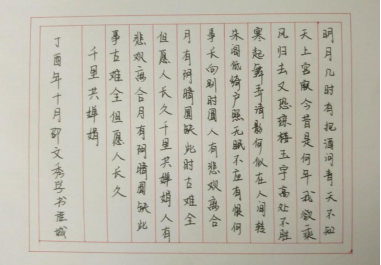 明月几时有把酒问青天不知
天上宫阙今昔是何年我欲乘
风归去又恐琼楼玉宇高处不胜
寒起舞弄清影何似在人间转
朱阁低绮户照无眠不应有恨何
事长向别时圆人有悲欢离合
月有阴晴圆缺此时古难全
但愿人长久千里共婵娟人有
悲欢离合月有阴晴圆缺此
事古难全但愿人长久
千里共婵娟
丁酉年十月邵文秀学书